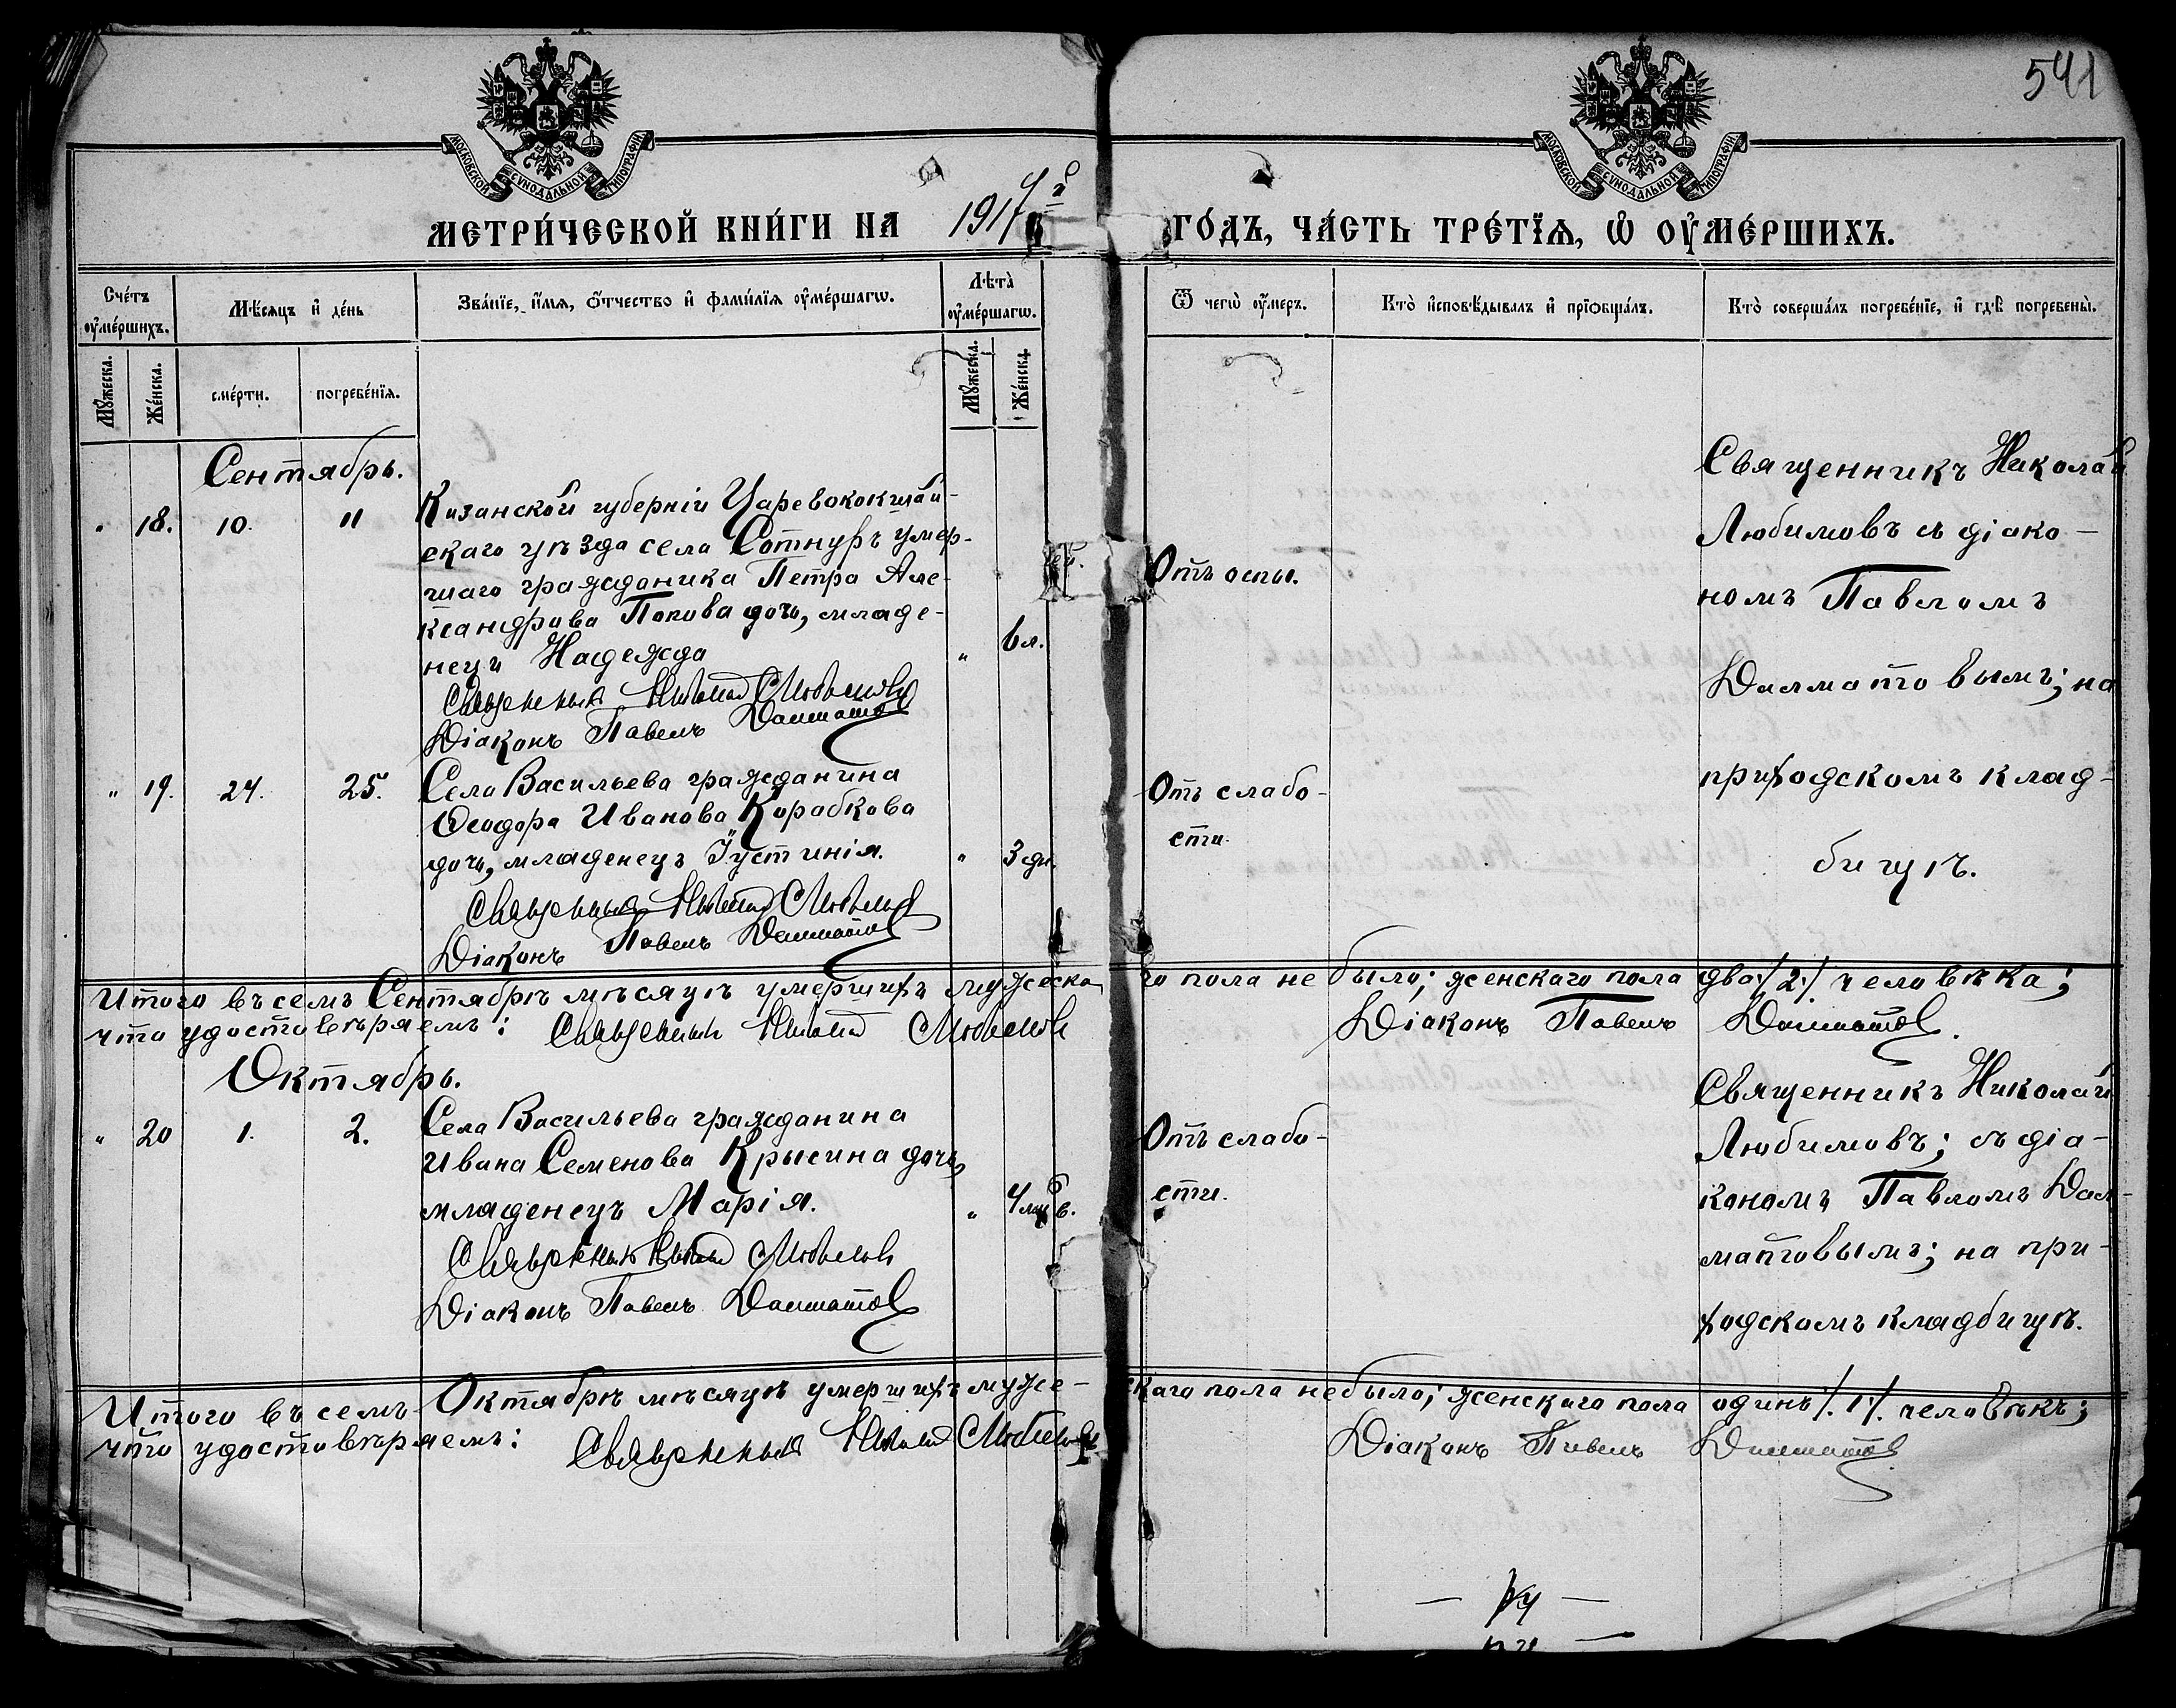 541
МОСКОВСКОЙ СѴНОДАЛЬНОЙ ТИПОГРАФІИ
МОСКОВСКОЙ СѴНОДАЛЬНОЙ ТИПОГРАФІИ
МЕТРИ́ЧЕСКОЙ КНИ́ГИ НА 1917й ГО́ДЪ, ЧА́СТЬ ТРЕ́ТЇѦ, Ѡ҆ ОУ҆МЕ́РШИХЪ.
Сче́тъ оу҆ме́ршихъ.
Мѣ́сѧцъ и҆ де́нь
Зва́нїе, и҆́мѧ, ѻ҆́тчество и҆ фами́лїѧ оу҆ме́ршагѡ.
Лѣ́та оу҆ме́ршагѡ.
Ѿ чегѡ̀ оу҆́меръ.
Кто̀ и҆сповѣ́дывалъ и҆ прїѡбща́лъ.
Кто̀ соверша́лъ погребе́нїе, и҆ гдѣ̀ погребены̀.
Мꙋ́жеска.
Же́нска.
сме́рти.
погребе́нїѧ.
Мꙋ́жеска.
Же́нска.
Сентябрь.
" 18. 10. 11
Казанской губерніи Царевококшай-
скаго уѣзда села Сотнуръ умер-
шаго гражданина Петра Але-
ксандрова Попова дочь, младе-
нецъ Надежда
" 6 л.
Отъ оспы.
Священникъ Николай Любимовъ
Діаконъ Павелъ Далматовъ
Священникъ Николай
Любимовъ съ діако-
номъ Павломъ
Далматовымъ; на
приходскомъ клад-
бищѣ.
" 19. 24. 25.
Села Васильева гражданина
Ѳеодора Иванова Коробкова
дочь, младенецъ Іустинія.
" 3 дн.
Отъ слабо-
сти.
Священникъ Николай Любимовъ
Діаконъ Павелъ Далматовъ
Итого въ семъ Сентябрѣ мѣсяцѣ умершихъ мужеска го пола не было; женскаго пола два /.2./ человѣка;
что удостовѣряемъ: Священникъ Николай Любимовъ Діаконъ Павелъ Далматовъ.
Октябрь.
" 20 1. 2.
Села Васильева гражданина
Ивана Семенова Крысина дочь,
младенецъ Марія.
" 4
Отъ слабо-
сти.
Священникъ Николай Любимовъ
Діаконъ Павелъ Далматовъ
Священникъ Николай
Любимовъ; съ діа-
кономъ Павломъ Дал-
матовымъ; на при-
ходскомъ кладбищѣ.
Итого въ семъ Октябрѣ мѣсяцѣ умершихъ муже- скаго пола не было; женскаго пола одинъ /.1./ человѣкъ;
что удостовѣряемъ: Священникъ Николай Любимовъ Діаконъ Павелъ Далматовъ